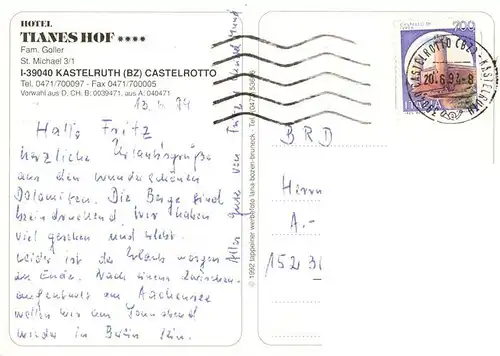 HOTEL
TIANES HOF ****
Fam. Goller
St. Michael 3/1
I-39040 KASTELRUTH (BZ) CASTELROTTO
Tel. 0471/700097 - Fax 0471/700005
Vorwahl aus D. CH. B: 0039471, aus A: 040471
Hallo Fritz
herzliche Urlaubsgrüße
aus den wunderschönen
Dolomiten. Die Berge sind
beeindruckend wir haben
viel gesehen und erlebt.
Leider ist der Urlaub morgen
zu Ende. Nach einem Zwischen-
aufenthalt am Aachensee
wollen wir am Sonnabend
wieder in Berlin sein.
Alles gute von
© 1992 tappeiner werbefoto lana-bozen-bruneck
200
ITALIA
CASTELROTTO (BZ) - KASTELRUTH
20.6.94-8
BRD
Herrn
A.-